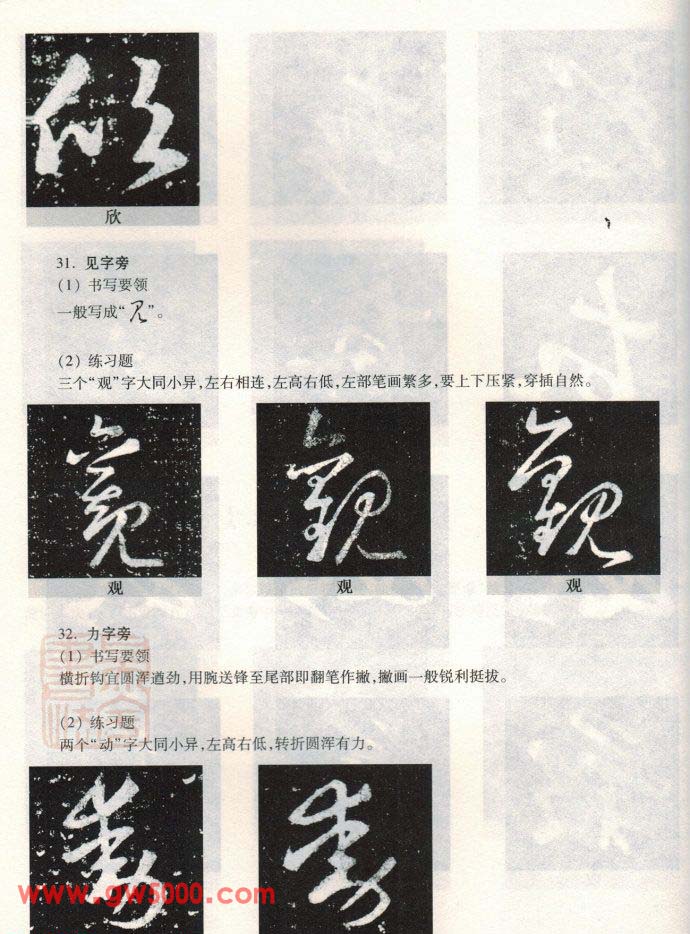 欣
31. 见字旁
(1) 书写要领
一般写成“见”。
(2) 练习题
三个“观”字大同小异,左右相连,左高右低,左部笔画繁多,要上下压紧,穿插自然。
观 观 观
32. 力字旁
(1) 书写要领
横折钩宜圆浑遒劲,用腕送锋至尾部即翻笔作撇,撇画一般锐利挺拔。
(2) 练习题
两个“动”字大同小异,左高右低,转折圆浑有力。
www.gw5000.com